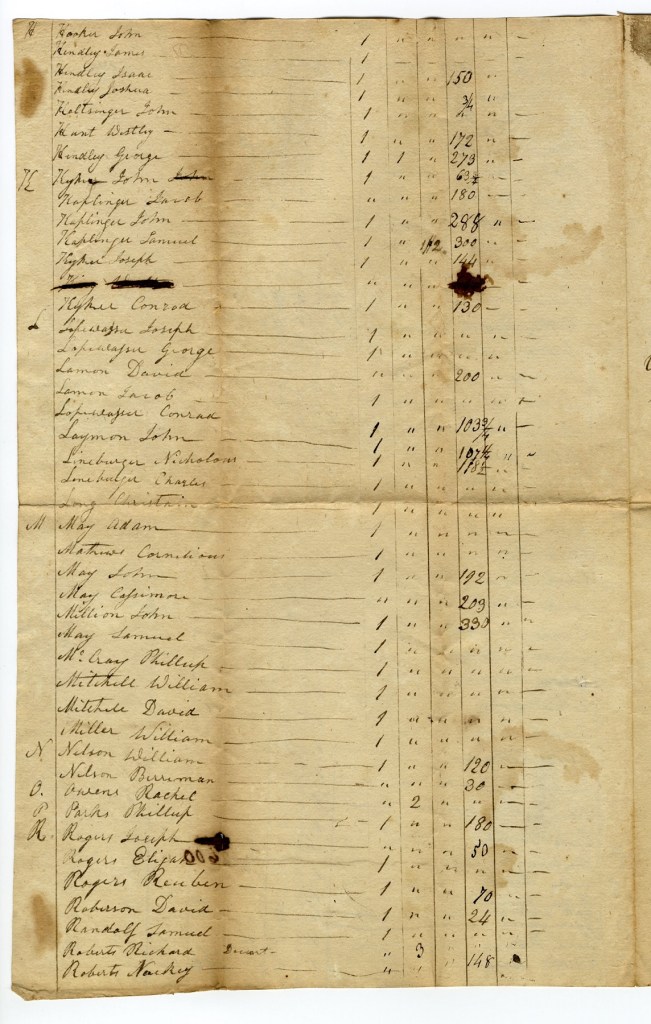 H Hooker John — 1 " " " " —
Hindley James 1 — " " " —
Hindley Isaac 1 " " 150 " —
Hindley Joshua 1 " " 3/4 " —
Holtsinger John — 1 " " " " —
Hunt Westly — 1 " " 172 " —
Hindley George 1 1 " 273 " —
K Hyker John 1 " " " —
Kaplinger Jacob " " " 180 — —
Kaplinger John — 1 " " 288 " —
Kaplinger Samuel 1 " 1/2 300 " —
Hyker Joseph 1 " " 144 " —
" " "
Hyker Conrod 1 " " 130 — —
L Lopewasser Joseph 1 " " " " —
Lopewasser George 1 " " " " —
Lamon David " " " 200 " —
Lamon Jacob — 1 " " " " —
Lopewasser Conrad
Laymon John — 1 " " 103 3/4 " —
Lineburger Nicholous 1 " " 107 " —
Lineburger Charles 1 " " 118 " —
Long Christain 1 " " " "
M May Adam 1 " " " " —
Mathews Cornelious 1 " " " " —
May John 1 " " 192 " —
May Cassimore " " " 203 " —
Million John — 1 " " 330 " —
May Samuel 1 " " " " —
McCray Phillup 1 " " " " —
Mitchell William 1 " " " " —
Mitchell David 1 " " " " —
Miller William — 1 " " " " —
N. Nelson William 1 " " 120 " —
Nelson Berriman " " " 30 — —
O. Owens Rachel " 2 " " " —
P Parks Phillup 1 " " 180 — —
R. Rogers Joseph " " " 50 " —
Rogers Elijah 1 " " " " —
Rogers Reuben — 1 " " 70 " —
Roberson David — 1 " " 24 " —
Randolf Samuel — 1 " " " " —
Roberts Richard " 3 " 148 " —
Roberts " " " " —